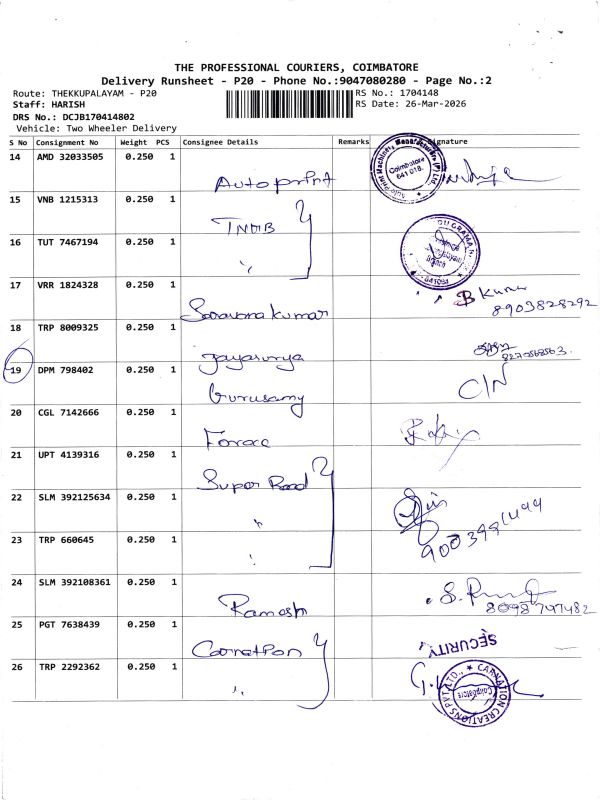 THE PROFESSIONAL COURIERS, COIMBATORE
Delivery Runsheet - P20 - Phone No.:9047080280 - Page No.:2
Route: THEKKUPALAYAM - P20
RS No.: 1704148
Staff: HARISH
RS Date: 26-Mar-2026
DRS No.: DCJB170414802
Vehicle: Two Wheeler Delivery
S No Consignment No Weight PCS Consignee Details Remarks Signature
14 AMD 32033505 0.250 1 Autoprint
Coimbatore 641 018.
15 VNB 1215313 0.250 1 TNMB
16 TUT 7467194 0.250 1 "
17 VRR 1824328 0.250 1 Saravanakumar
8903828292
18 TRP 8009325 0.250 1 Jayasurya
19 DPM 798402 0.250 1 Gurusamy C/N
20 CGL 7142666 0.250 1 Force
21 UPT 4139316 0.250 1 Super Road
22 SLM 392125634 0.250 1 "
23 TRP 660645 0.250 1 "
24 SLM 392108361 0.250 1 Ramesh
8098797482
25 PGT 7638439 0.250 1
SECURITY
26 TRP 2292362 0.250 1 "
CARNATION CREATIONS PVT. LTD.,
Coimbatore